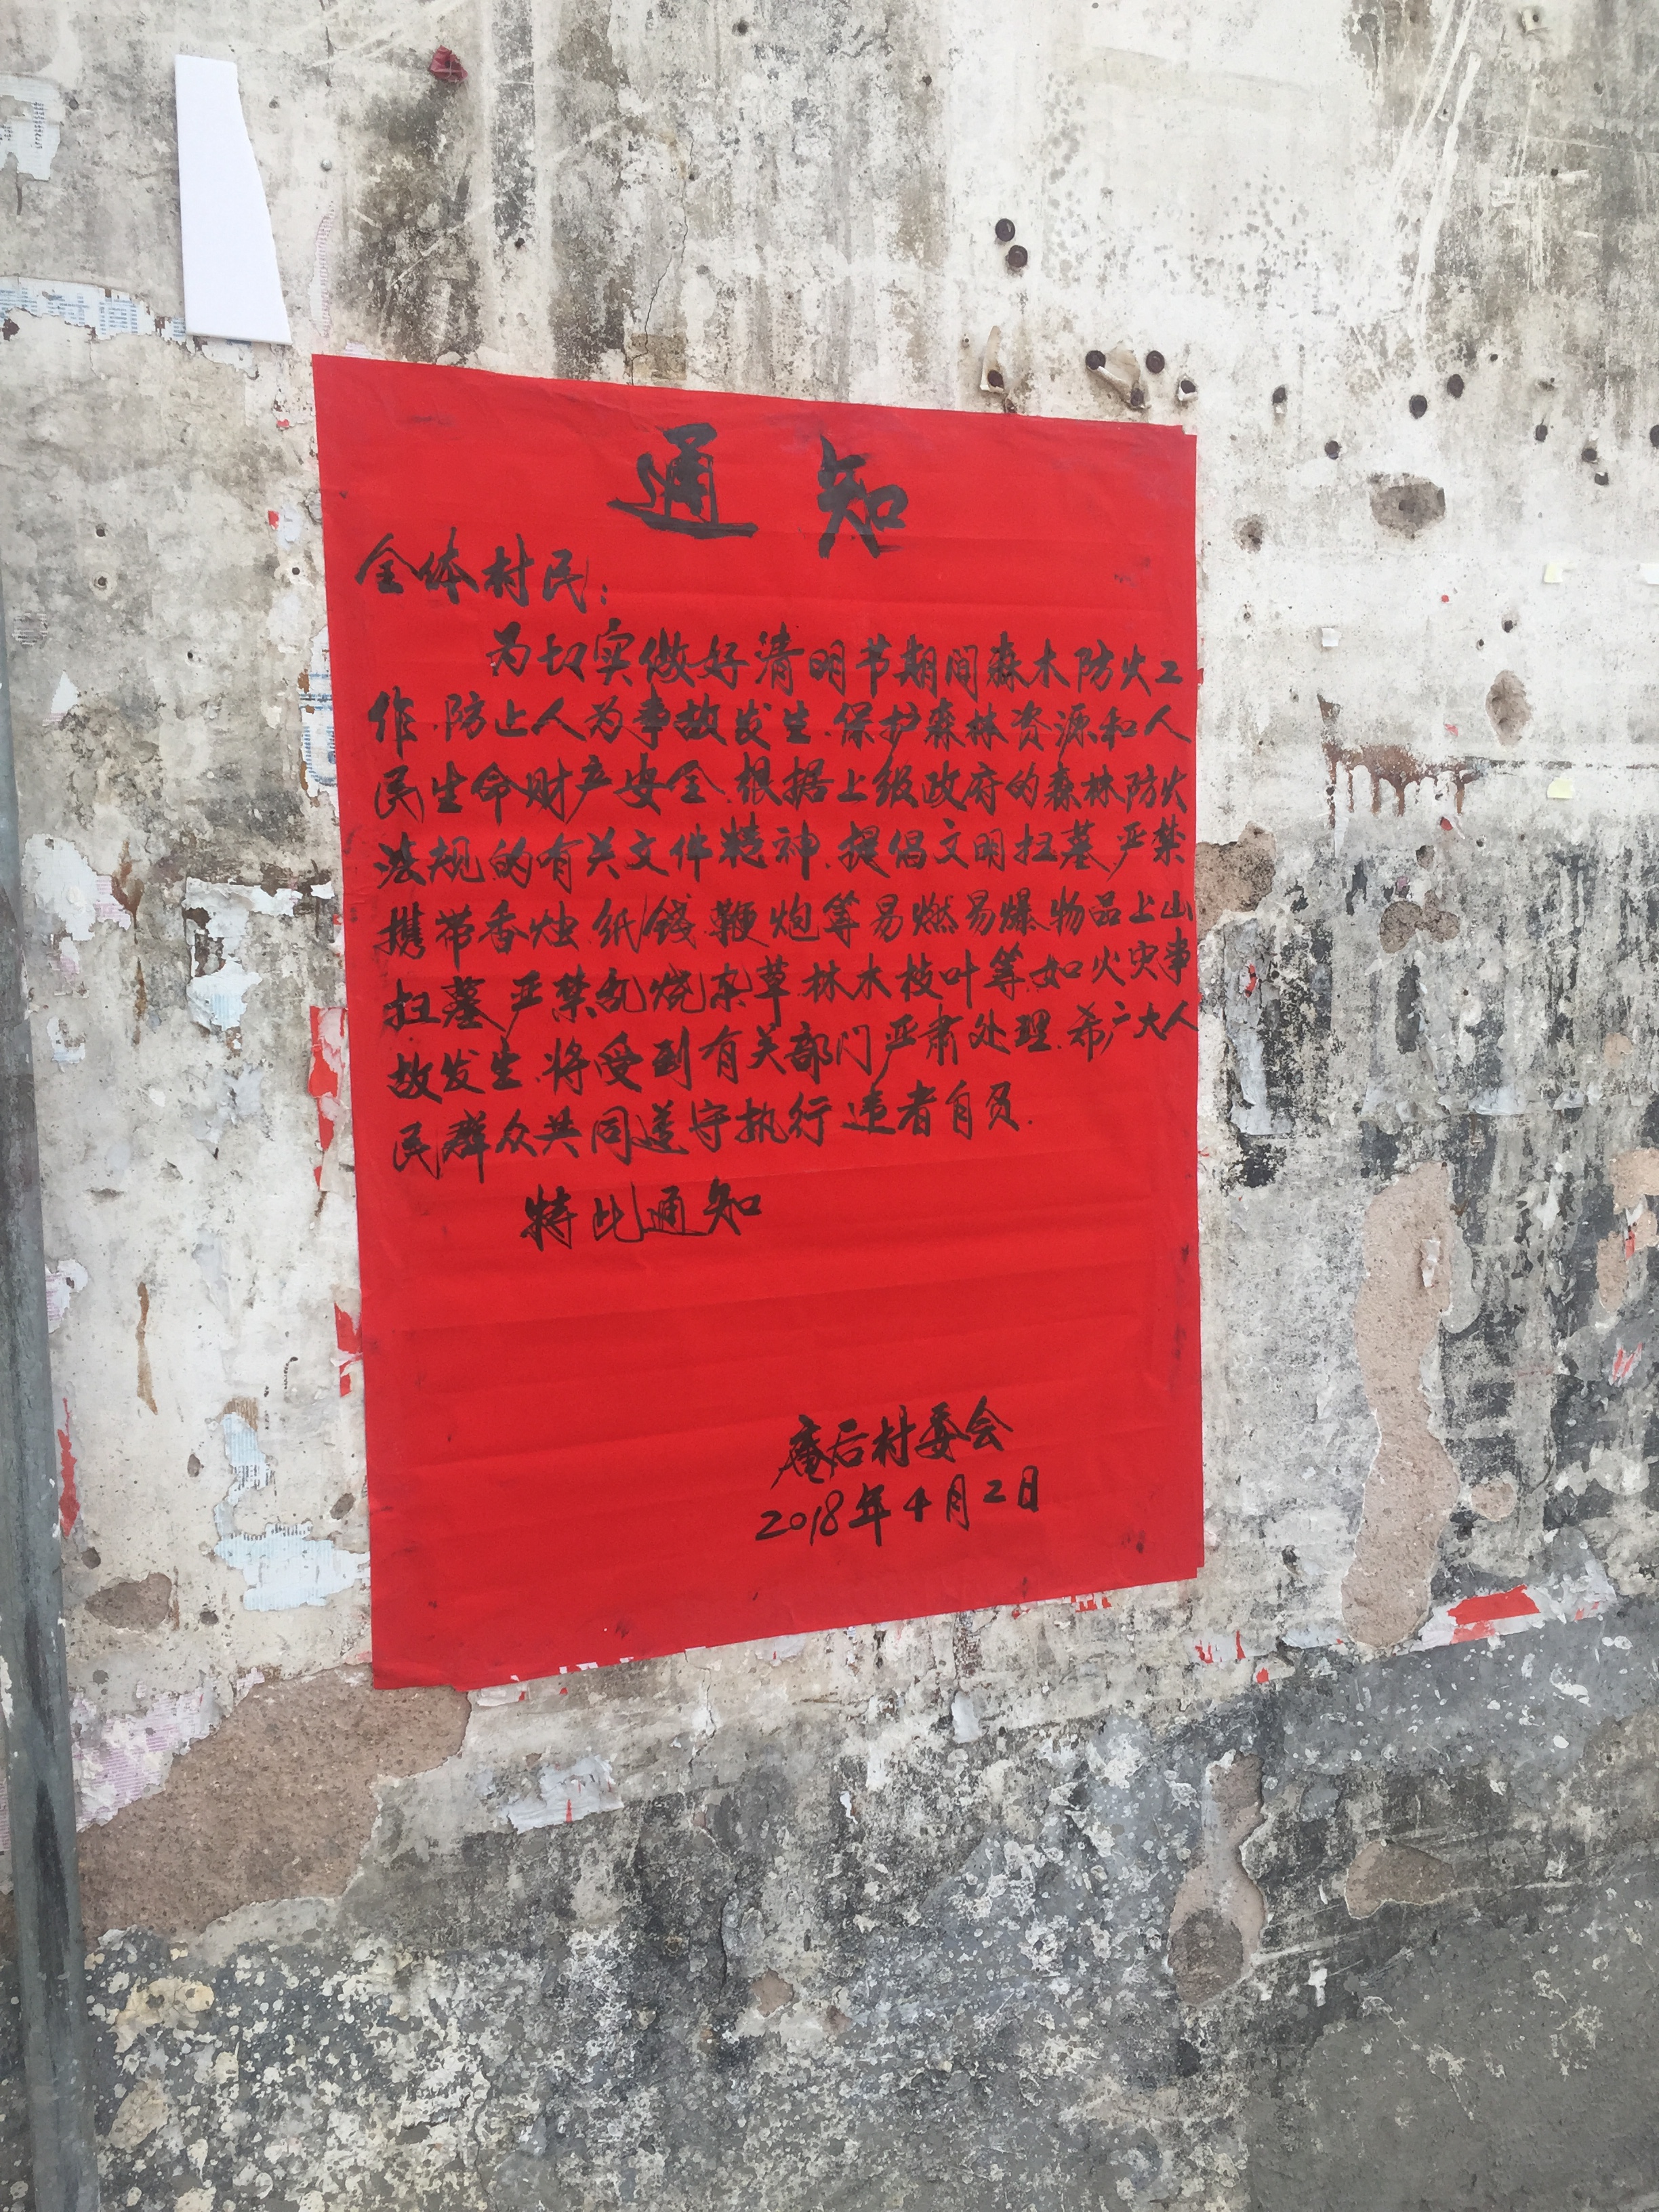 通知
全体村民:
为切实做好清明节期间森木防火工
作.防止人为事故发生.保护森林资源和人
民生命财产安全.根据上级政府的森林防火
法规的有关文件精神.提倡文明扫墓.严禁
携带香烛.纸钱鞭炮等易燃易爆物品上山
扫墓.严禁乱烧杂草.林木枝叶等.如火灾事
故发生.将受到有关部门严肃处理.希广大人
民群众共同遵守执行.违者自负.
特此通知
庵后村委会
2018年4月2日